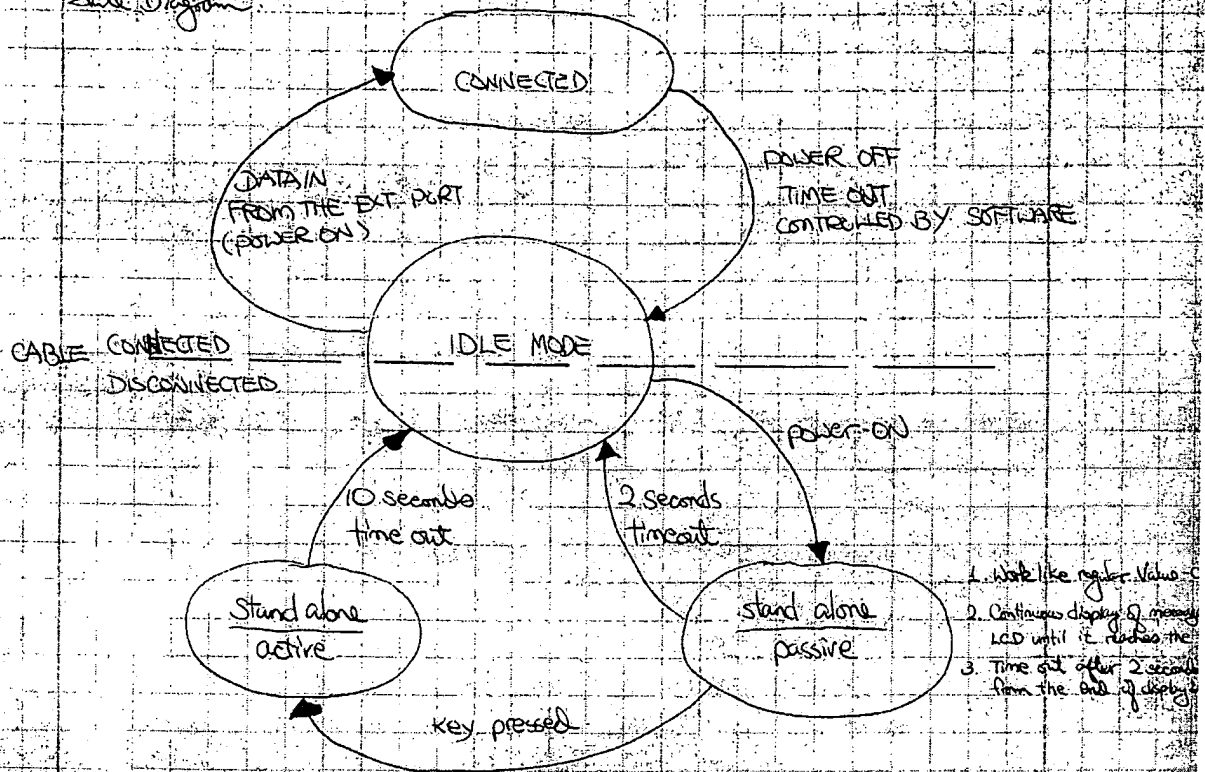 State Diagram
CONNECTED
DATA IN
FROM THE EXT. PORT
(POWER ON)
POWER OFF
TIME OUT
CONTROLLED BY SOFTWARE
CABLE CONNECTED
DISCONNECTED
IDLE MODE
POWER-ON
10 seconds
time out
2 seconds
timeout
Stand alone
active
stand alone
passive
1. Work like regular Value-C
2. Continuous display of memory
LCD until it reaches the
3. Time out after 2 seconds
from the end of display
key pressed